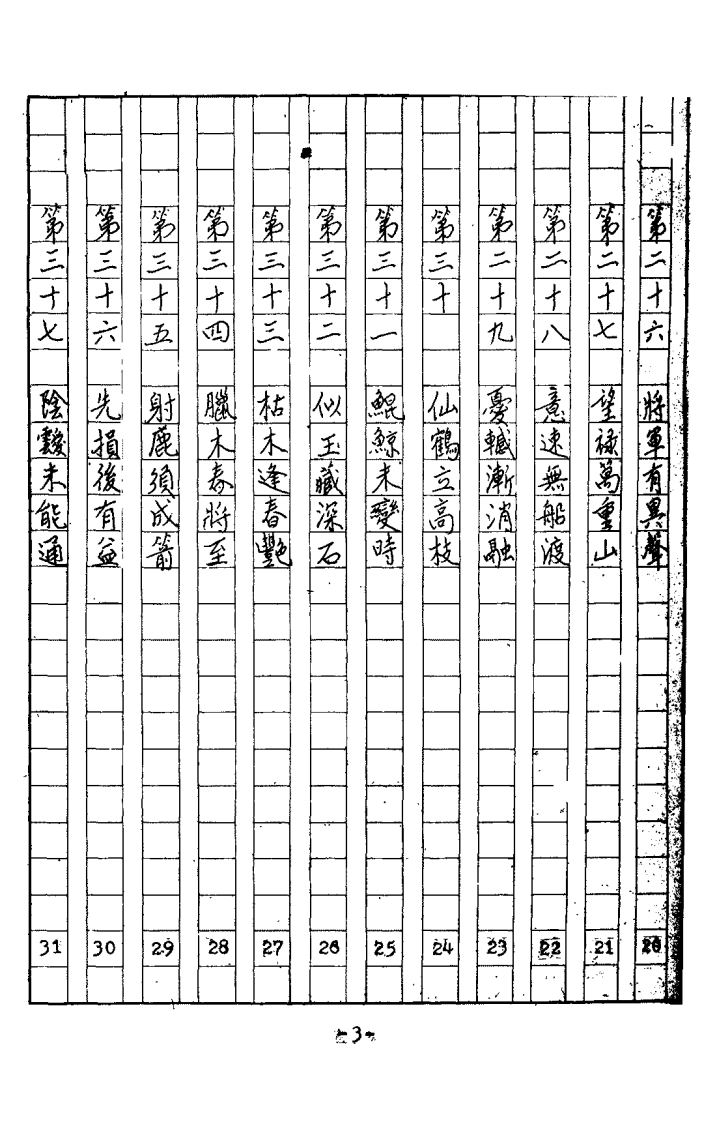 第二十六 將軍有異聲 20
第二十七 望祿萬重山 21
第二十八 意速無船渡 22
第二十九 憂轗漸消融 23
第三十 仙鶴立高枝 24
第三十一 鯤鯨未變時 25
第三十二 似玉藏深石 26
第三十三 枯木逢春艷 27
第三十四 臘木春將至 28
第三十五 射鹿須成箭 29
第三十六 先損後有益 30
第三十七 陰靉未能通 31
-3-